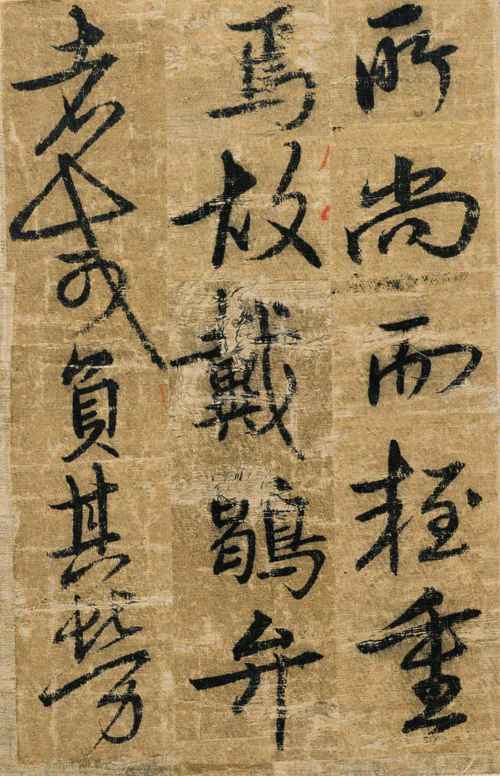 所尚而輕重
焉故戴鶡弁
者負其勞